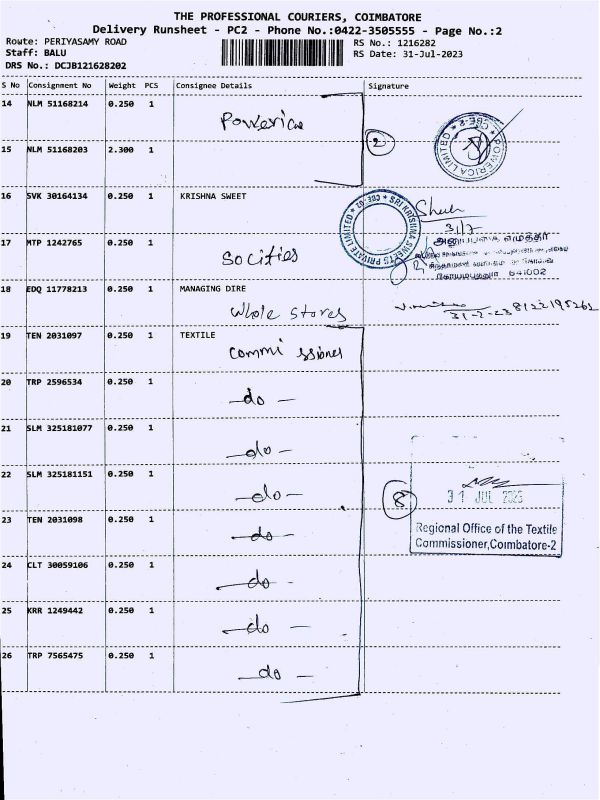 THE PROFESSIONAL COURIERS, COIMBATORE
Delivery Runsheet - PC2 - Phone No.:0422-3505555 - Page No.:2
Route: PERIYASAMY ROAD
RS No.: 1216282
Staff: BALU
RS Date: 31-Jul-2023
DRS No.: DCJB121628202
S No Consignment No Weight PCS Consignee Details Signature
14 NLM 51168214 0.250 1 Powerica
2
POWERICA LIMITED ★ CBE-2 ★
15 NLM 51168203 2.300 1
16 SVK 30164134 0.250 1 KRISHNA SWEET
SRI KRISHNA SWEETS PRIVATE LIMITED ★ CBE-02 ★
31/7
17 MTP 1242765 0.250 1 Socities
641002
18 EDQ 11778213 0.250 1 MANAGING DIRE
Whole Stores
31-7-23
19 TEN 2031097 0.250 1 TEXTILE
Commissioner
20 TRP 2596534 0.250 1 -do-
21 SLM 325181077 0.250 1 -do-
22 SLM 325181151 0.250 1 -do-
8
31 JUL 2023
23 TEN 2031098 0.250 1 -do-
Regional Office of the Textile
Commissioner,Coimbatore-2
24 CLT 30059106 0.250 1 -do-
25 KRR 1249442 0.250 1 -do-
26 TRP 7565475 0.250 1 -do-